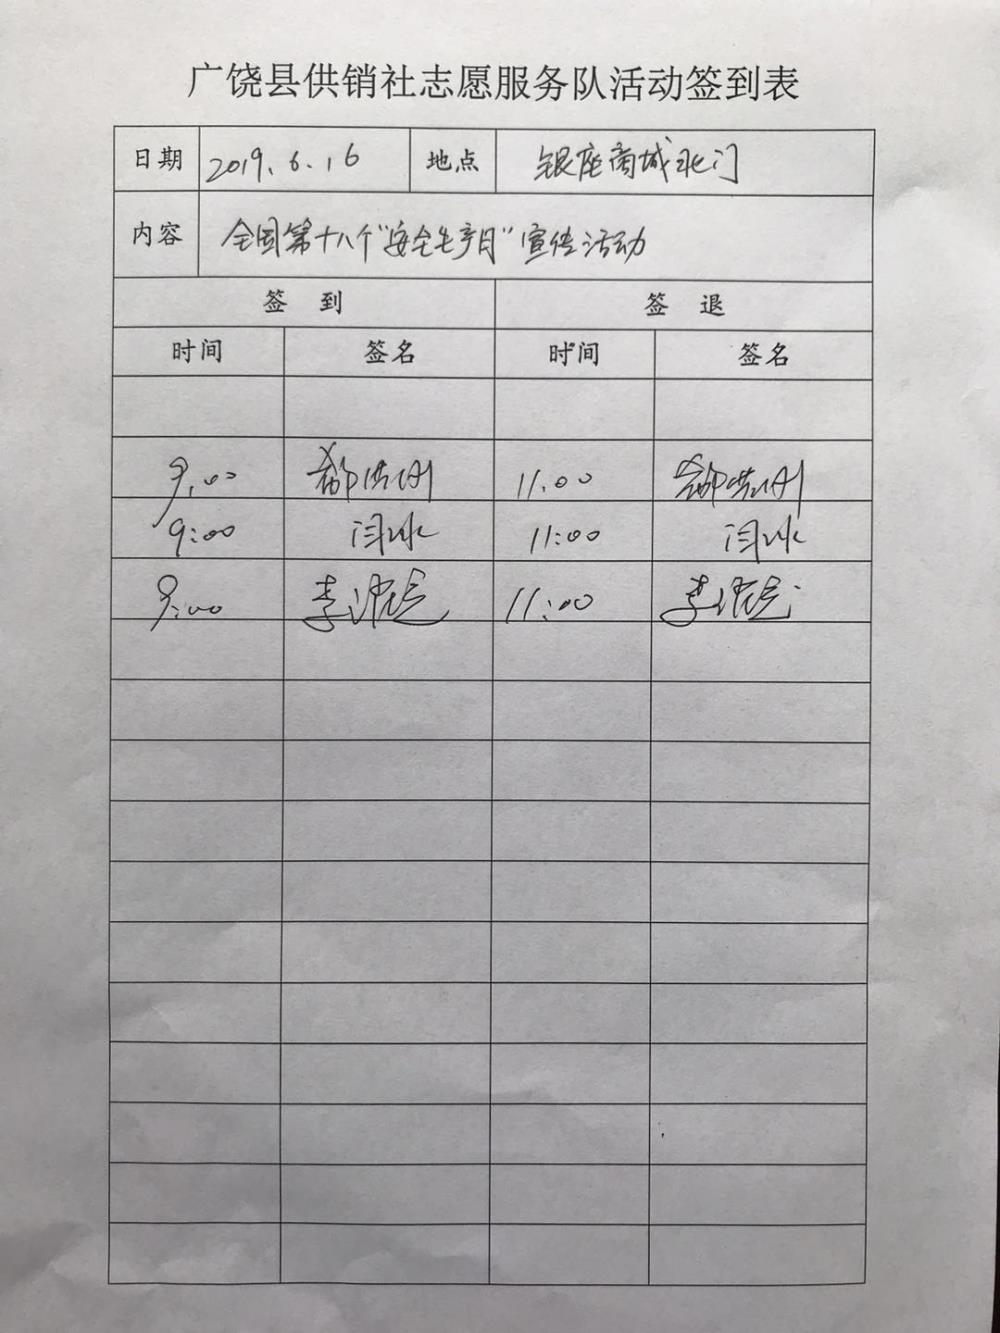 广饶县供销社志愿服务队活动签到表
日期 2019.6.16 地点 银座商城北门
内容 全国第十八个"安全生产月"宣传活动
签 到 签 退
时间 签名 时间 签名
9:00 11:00
9:00 闫冰 11:00 闫冰
9:00 李 11:00 李